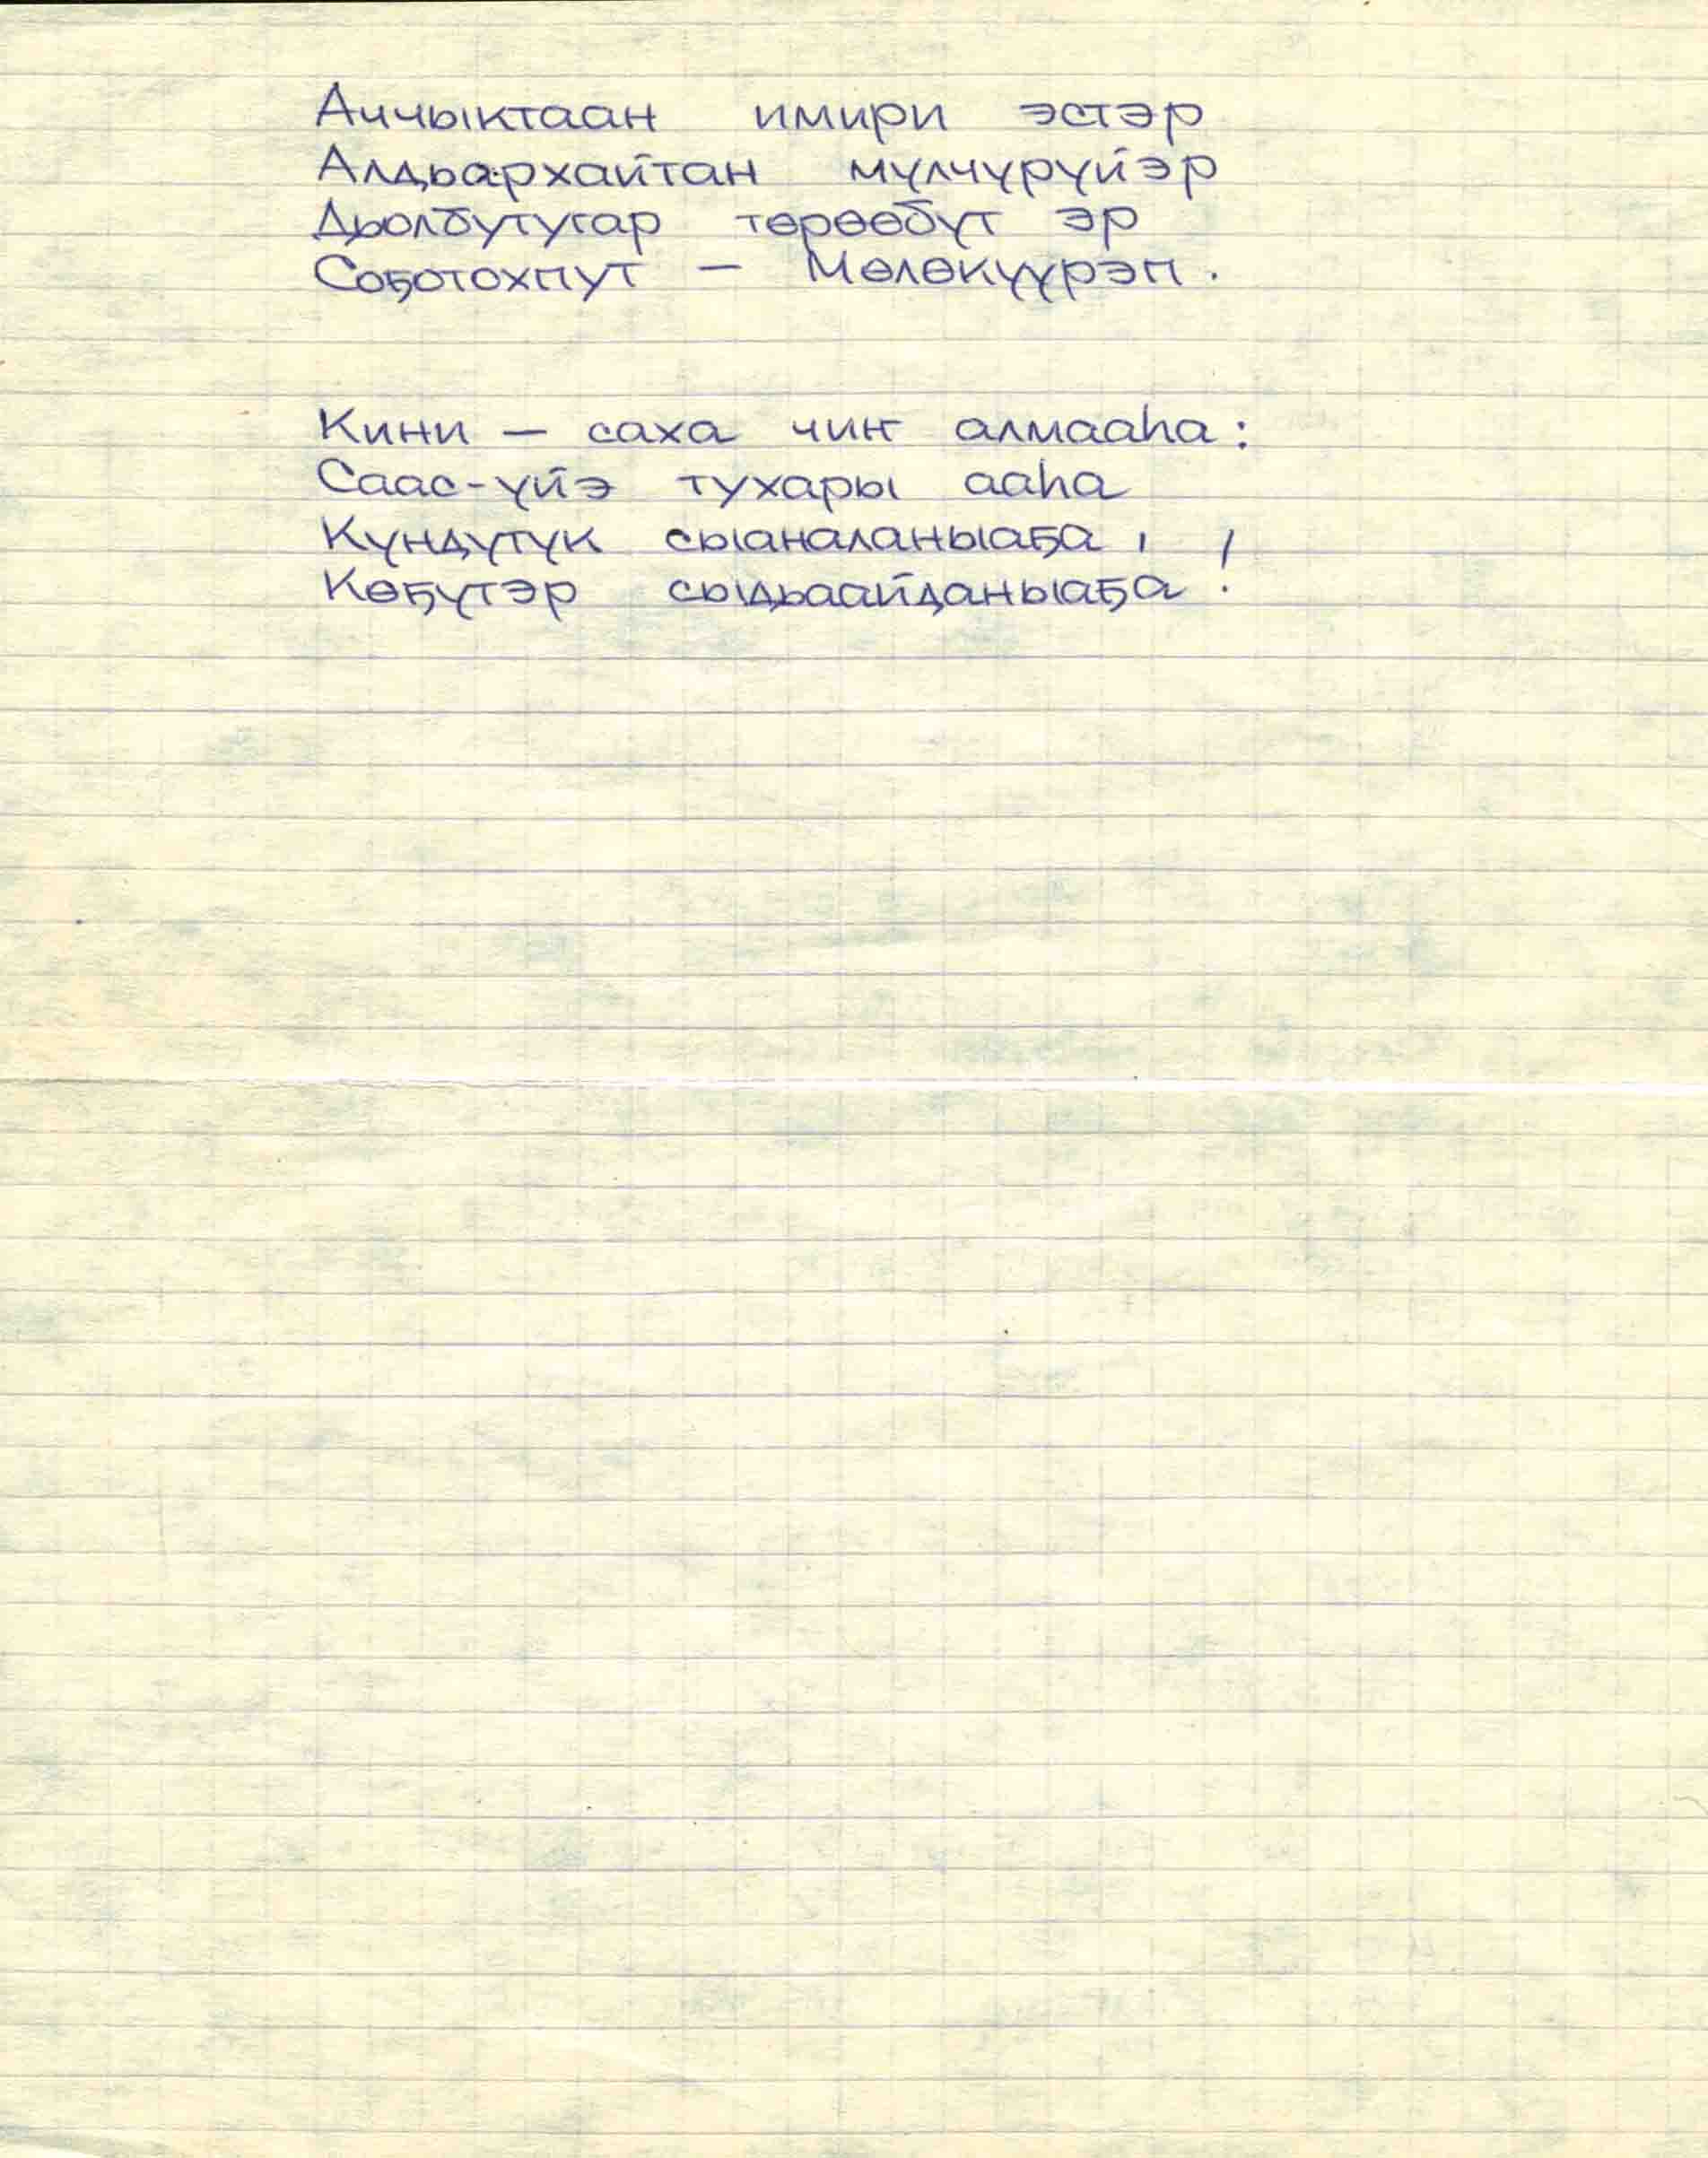 Аччыктаан имири эстэр
Алдьархайтан мүлчүрүйэр
Дьолбутугар төрөөбүт эр
Соҕотохпут – Мөлөкүүрэп.
Кини – саха чиҥ алмааһа:
Саас-үйэ тухары ааһа
Күндүтүк сыаналаныаҕа,
Көҕүтэр сыдьаайданыаҕа!